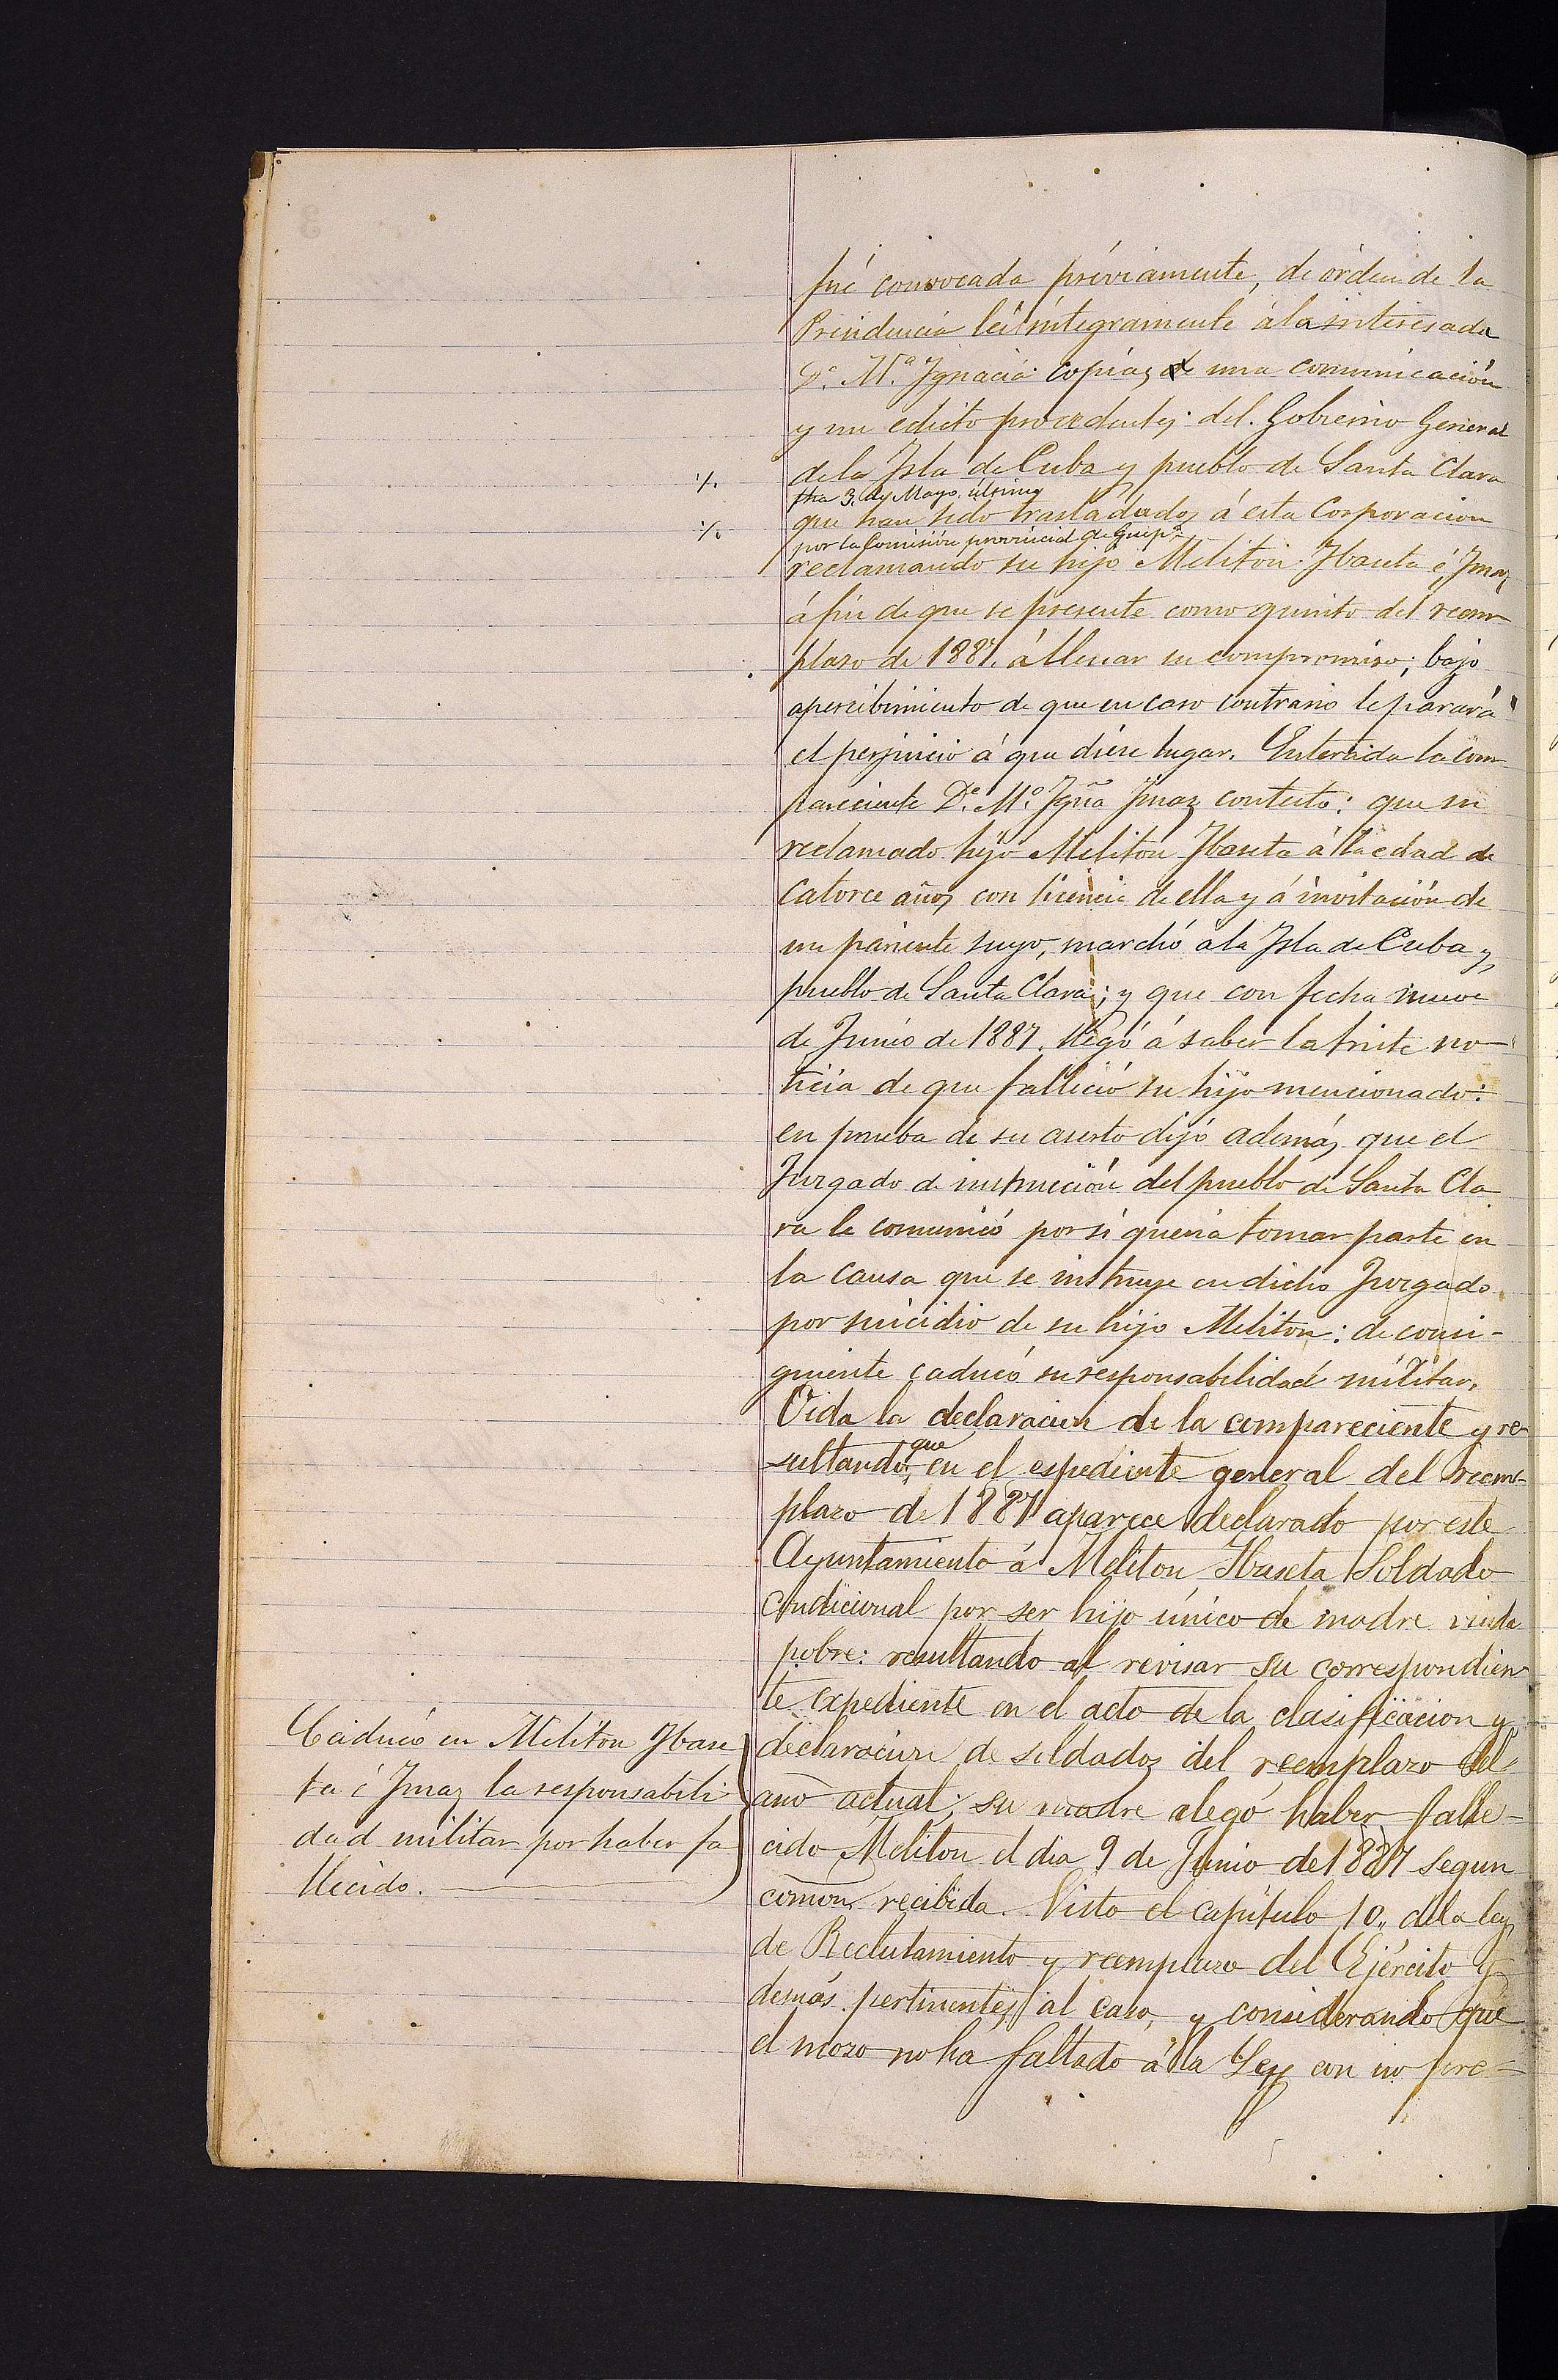 fué convocada préviamente, de órden de la
Presidencia leí íntegramente á la interesada
D.ª M.ª Ygnacia copias de una comunicación
y un edicto procedentes del Gobierno General
de la Ysla de Cuba y pueblo de Santa Clara
fha 3 de Mayo último
que han sido trasladados á esta Corporacion
por la Comisión provincial de Guip.ª
reclamando su hijo Meliton Ybaseta é Ymaz
á fin de que se presente como quinto del reem
plazo de 1887. á llenar su compromiso; bajo
apercibimiento de que en caso contrario le parará
el perjuicio á que diere lugar. Enterada la com
pareciente D.ª M.ª Ygña Ymaz contestó: que su
reclamado hijo Meliton Ybaseta á la edad de
catorce años, con licencia de ella y á invitación de
un pariente suyo, marchó a la Ysla de Cuba y
pueblo de Santa Clara; y que con fecha nueve
de Junio de 1887. llegó á saber la triste no-
ticia de que falleció su hijo mencionado:
en prueba de su aserto dijo además, que el
Juzgado de instrucción del pueblo de Santa Cla
ra le comunicó por si quería tomar parte en
la causa que se instruye en dicho Juzgado
por suicidio de su hijo Meliton: de consi-
guiente caducó su responsabilidad militar.
Oida la declaracion de la compareciente y re
sultando, que en el espediente general del reem-
plazo de 1887 aparece declarado por este
Ayuntamiento á Meliton Ybaseta Soldado
condicional por ser hijo único de madre viuda
pobre: resultando al revisar su correspondien
te expediente en el acto de la clasificacion y
declaracion de soldados del reemplazo del
año actual; su madre alegó haber falle-
cido Meliton el dia 9 de Junio de 1887 segun
comon. recibida. Visto el capítulo 10,, de la ley
de Reclutamiento y reemplazo del Ejército y
demás pertinentes al caso, y considerando que
el mozo no ha faltado á la Ley con no pre=
Caducó en Meliton Ybase
ta é Ymaz la responsabili
dad militar por haber fa
llecido.